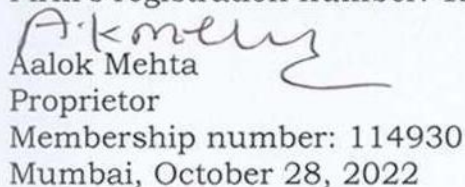 A.K Mehta
Aalok Mehta
Proprietor
Membership number: 114930
Mumbai, October 28, 2022